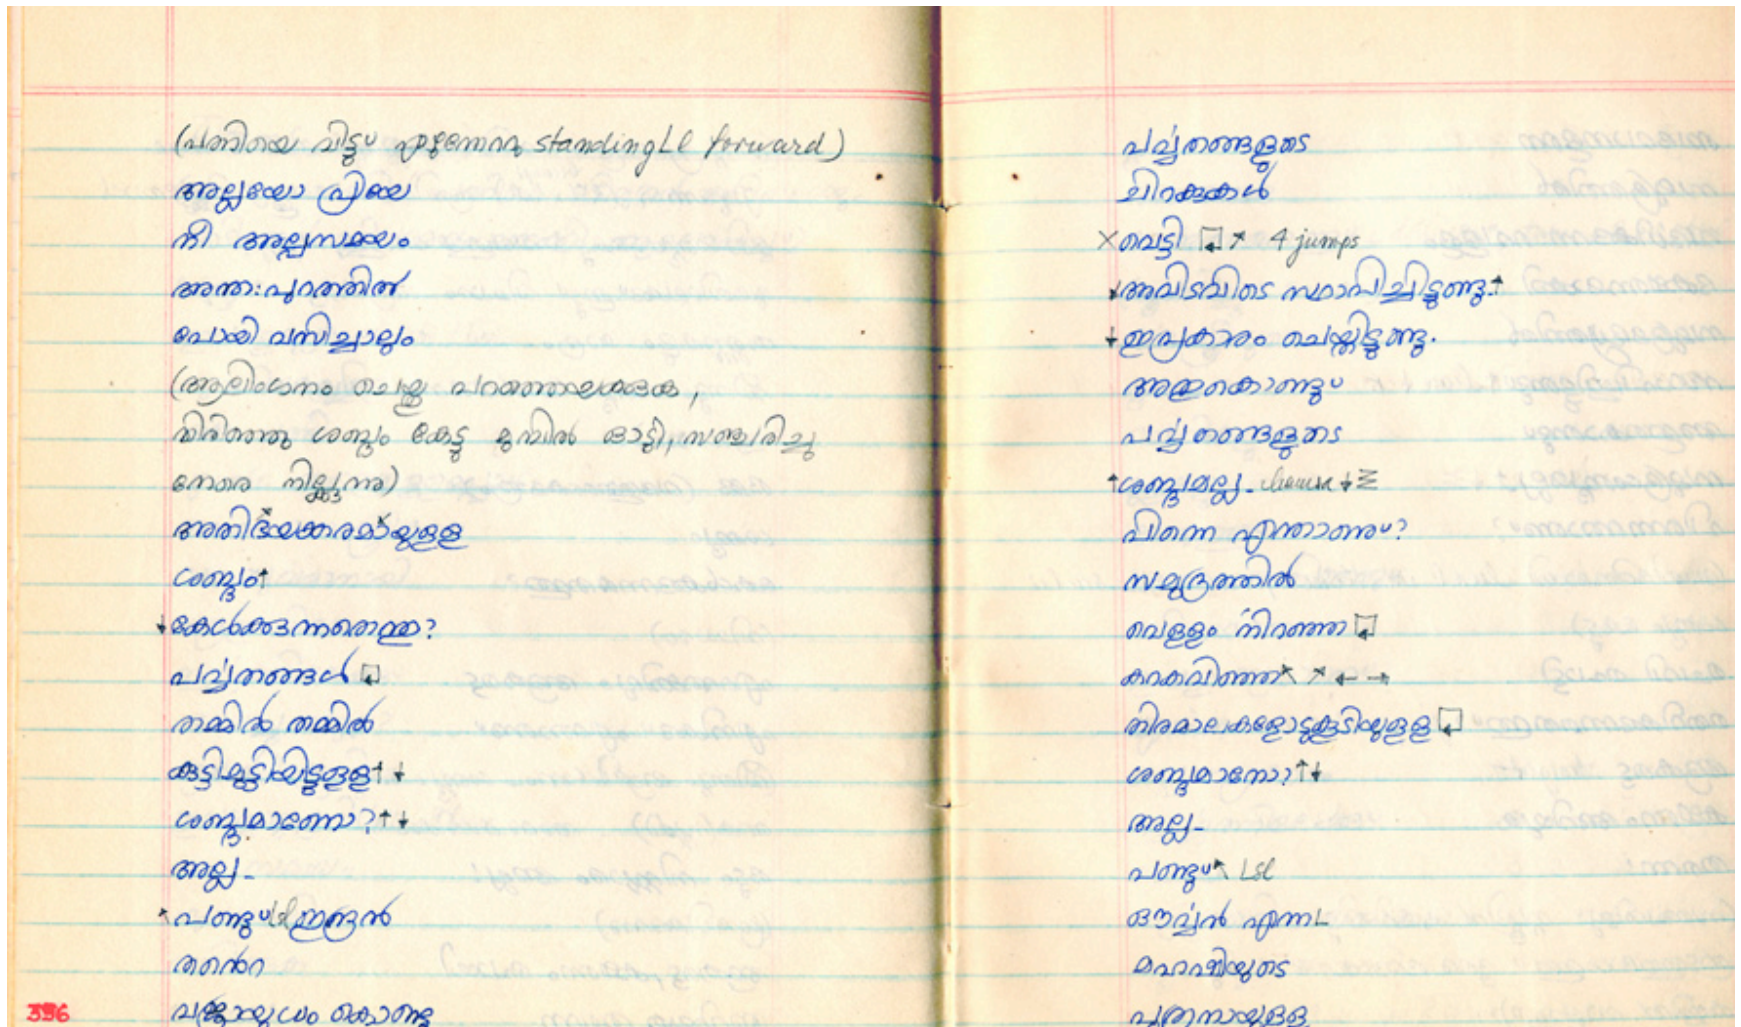 (പത്നിയെ വിട്ടു് എഴുന്നേറ്റു standing Ll forward)
അല്ലയോ പ്രിയേ
നീ അല്പസമയം
അന്തഃപുറത്തിൽ
പോയി വസിച്ചാലും
(ആലിംഗനം ചെയ്തു പറഞ്ഞയക്കുക,
തിരിഞ്ഞു ശബ്ദം കേട്ടു മുമ്പിൽ ഓട്ടി, സഞ്ചരിച്ചു
നേരെ നില്ക്കുന്നു)
അതിഭയങ്കരമായുളള
ശബ്ദം↑
↓കേൾക്കുന്നതെന്തു?
പർവ്വതങ്ങൾ
തമ്മിൽ തമ്മിൽ
കൂട്ടിമുട്ടിയിട്ടുളള↑ ↓
ശബ്ദമാണോ?↑ ↓
അല്ല_
↖പണ്ടു് Lsl ഇന്ദ്രൻ
തൻെറ
വജ്രായുധം കൊണ്ടു
396
പർവ്വതങ്ങളുടെ
ചിറകുകൾ
×വെട്ടി ↗ 4 jumps
↓അവിടവിടെ സ്ഥാപിച്ചിട്ടുണ്ടു.↑
↓ഇപ്രകാരം ചെയ്തിട്ടുണ്ടു.
അതുകൊണ്ടു്
പർവ്വതങ്ങളുടെ
↑ശബ്ദമല്ല_ ↓
പിന്നെ എന്താണു്?
സമുദ്രത്തിൽ
വെളളം നിറഞ്ഞു
കരകവിഞ്ഞു↖ ↗ ← →
തിരമാലകളോടുകൂടിയുളള
ശബ്ദമാനോ?↑↓
അല്ല_
പണ്ടു്↖ Lsl
ഔർവ്വൻ എന്ന L
മഹർഷിയുടെ
പുത്രനായുളള